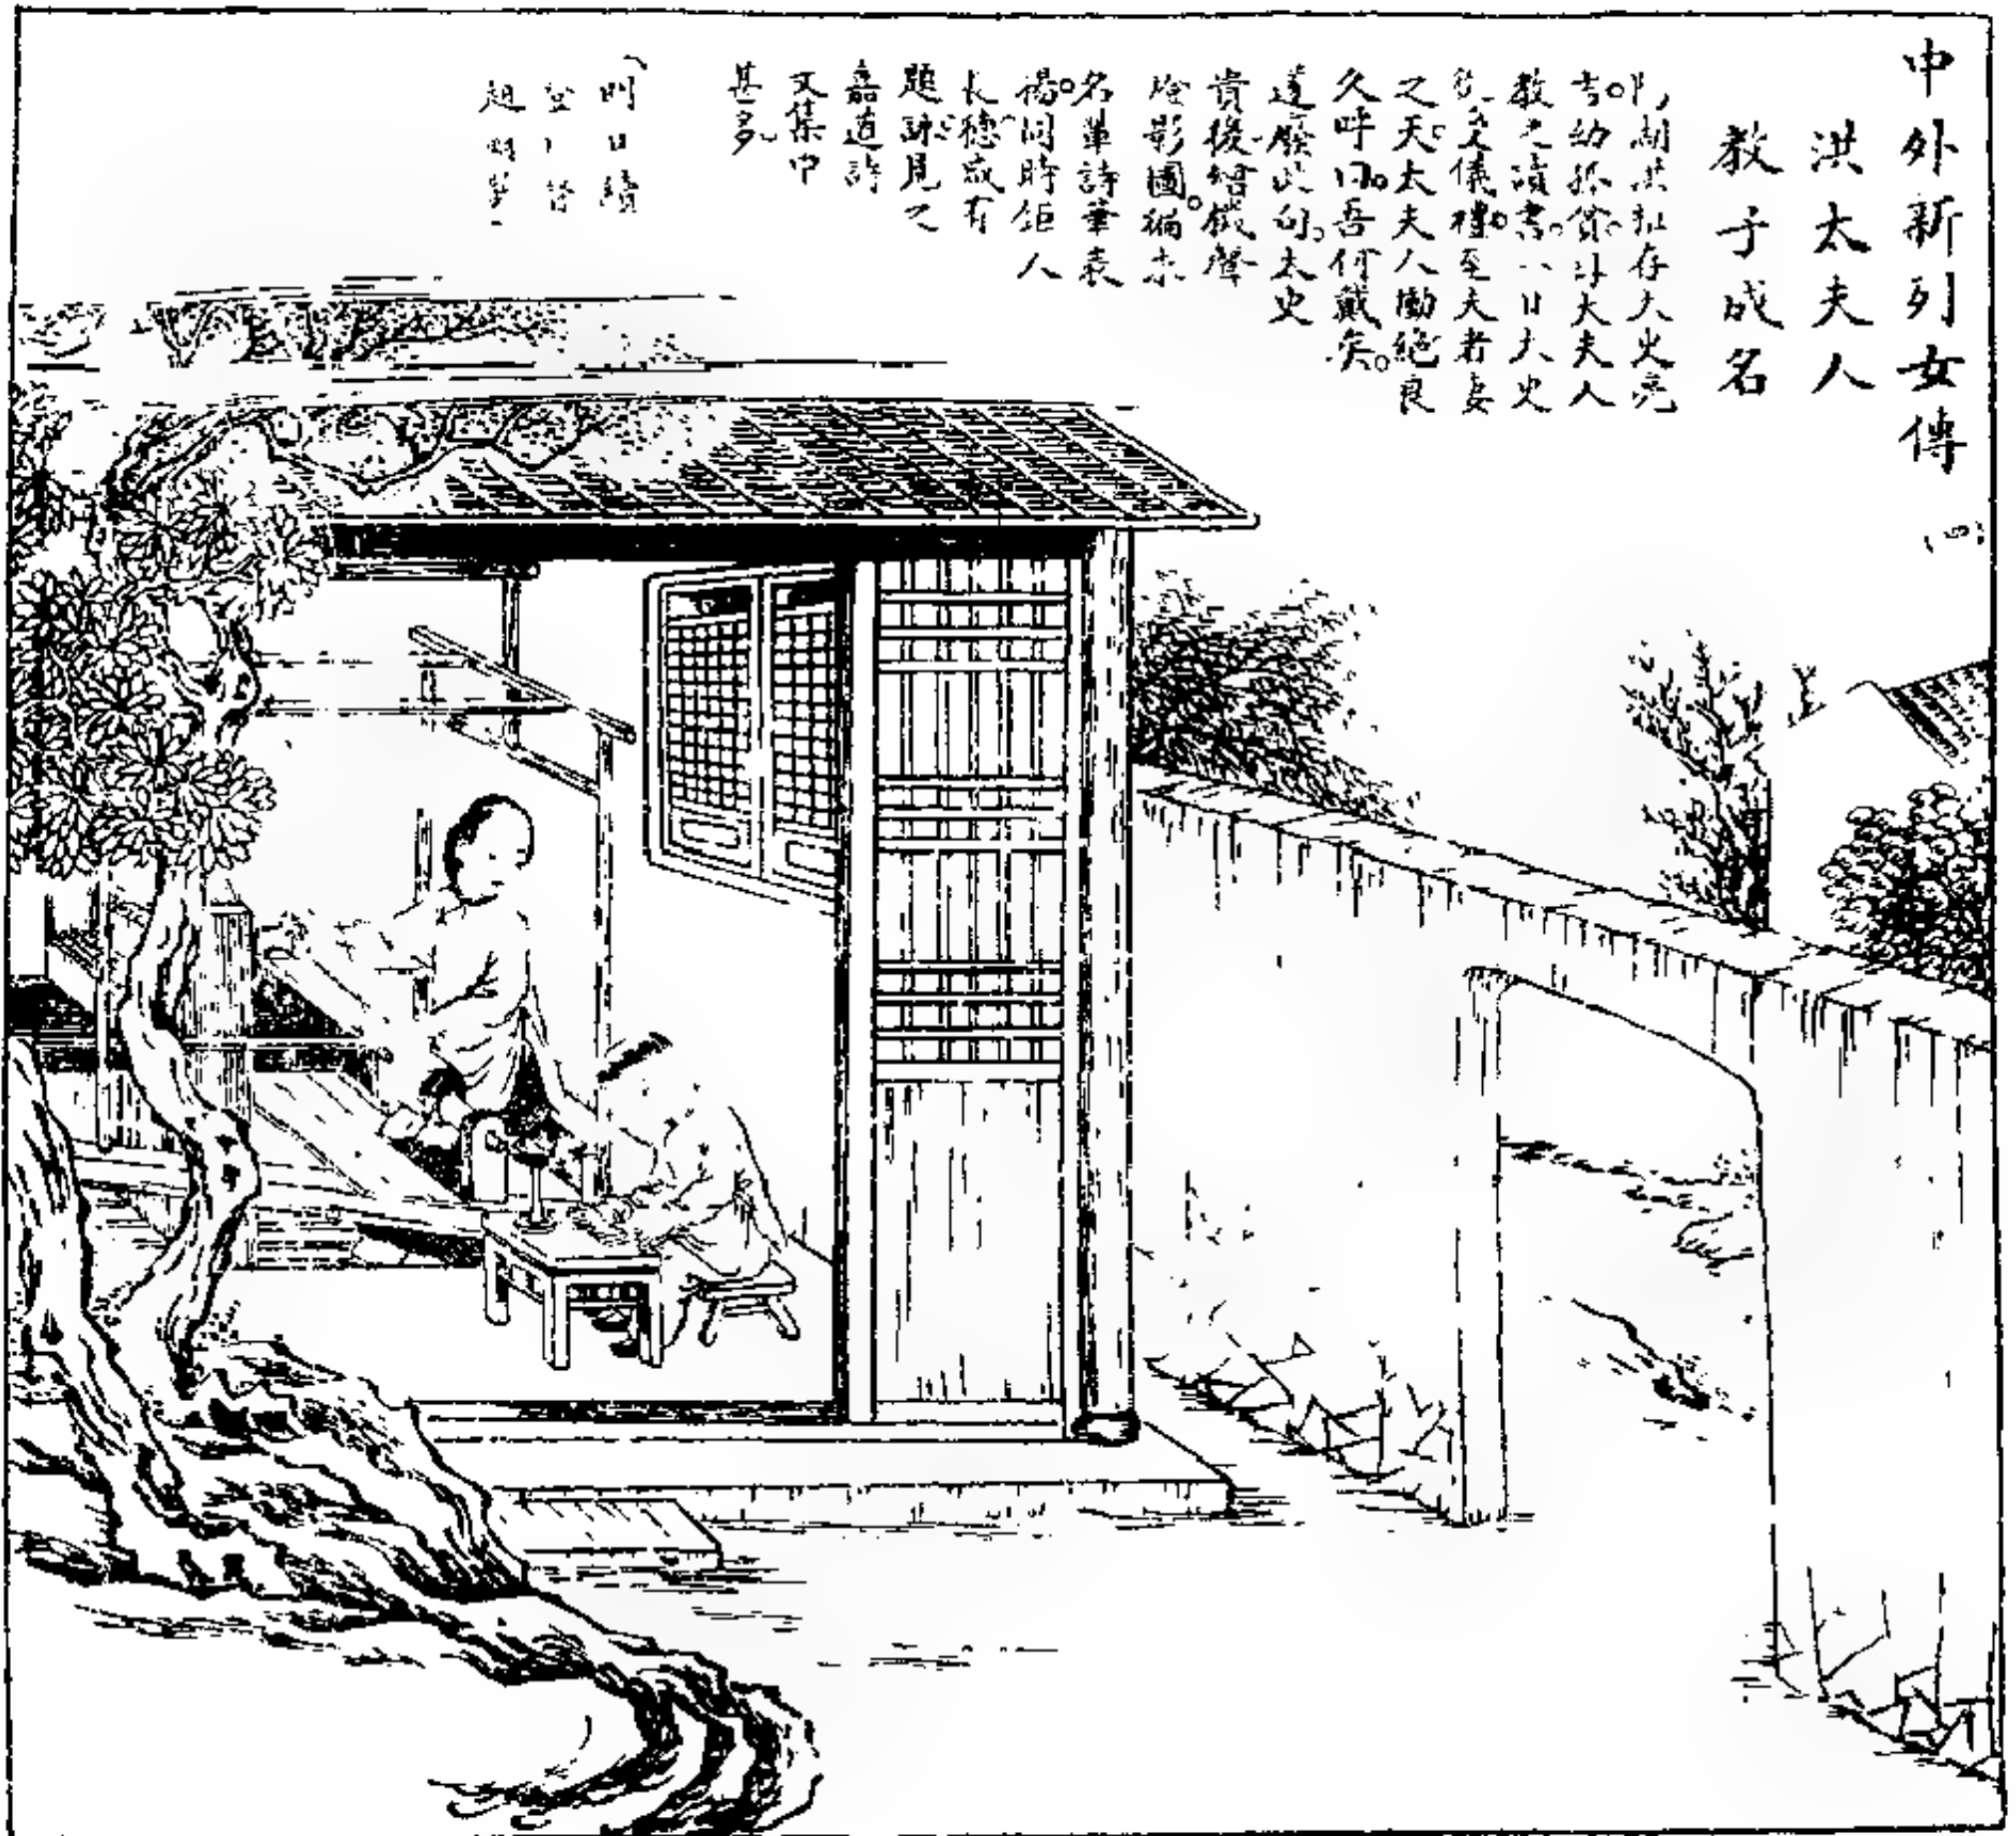 中外新列女傳
(四)
洪太夫人
教子成名
洪稚存太史亮
吉。幼孤貧。太夫人
教之讀書。一日太史
儀禮。至夫者妻
之天。太夫人慟絕良
久。呼曰。吾何戴矣。
遂廢此句。太史
貴後。繪機聲
影圖。徧求
名輩詩筆表
揚。同時鉅人
長德。咸有
題詠。見之
嘉道詩
文集中
甚多。
明日續
登
趙